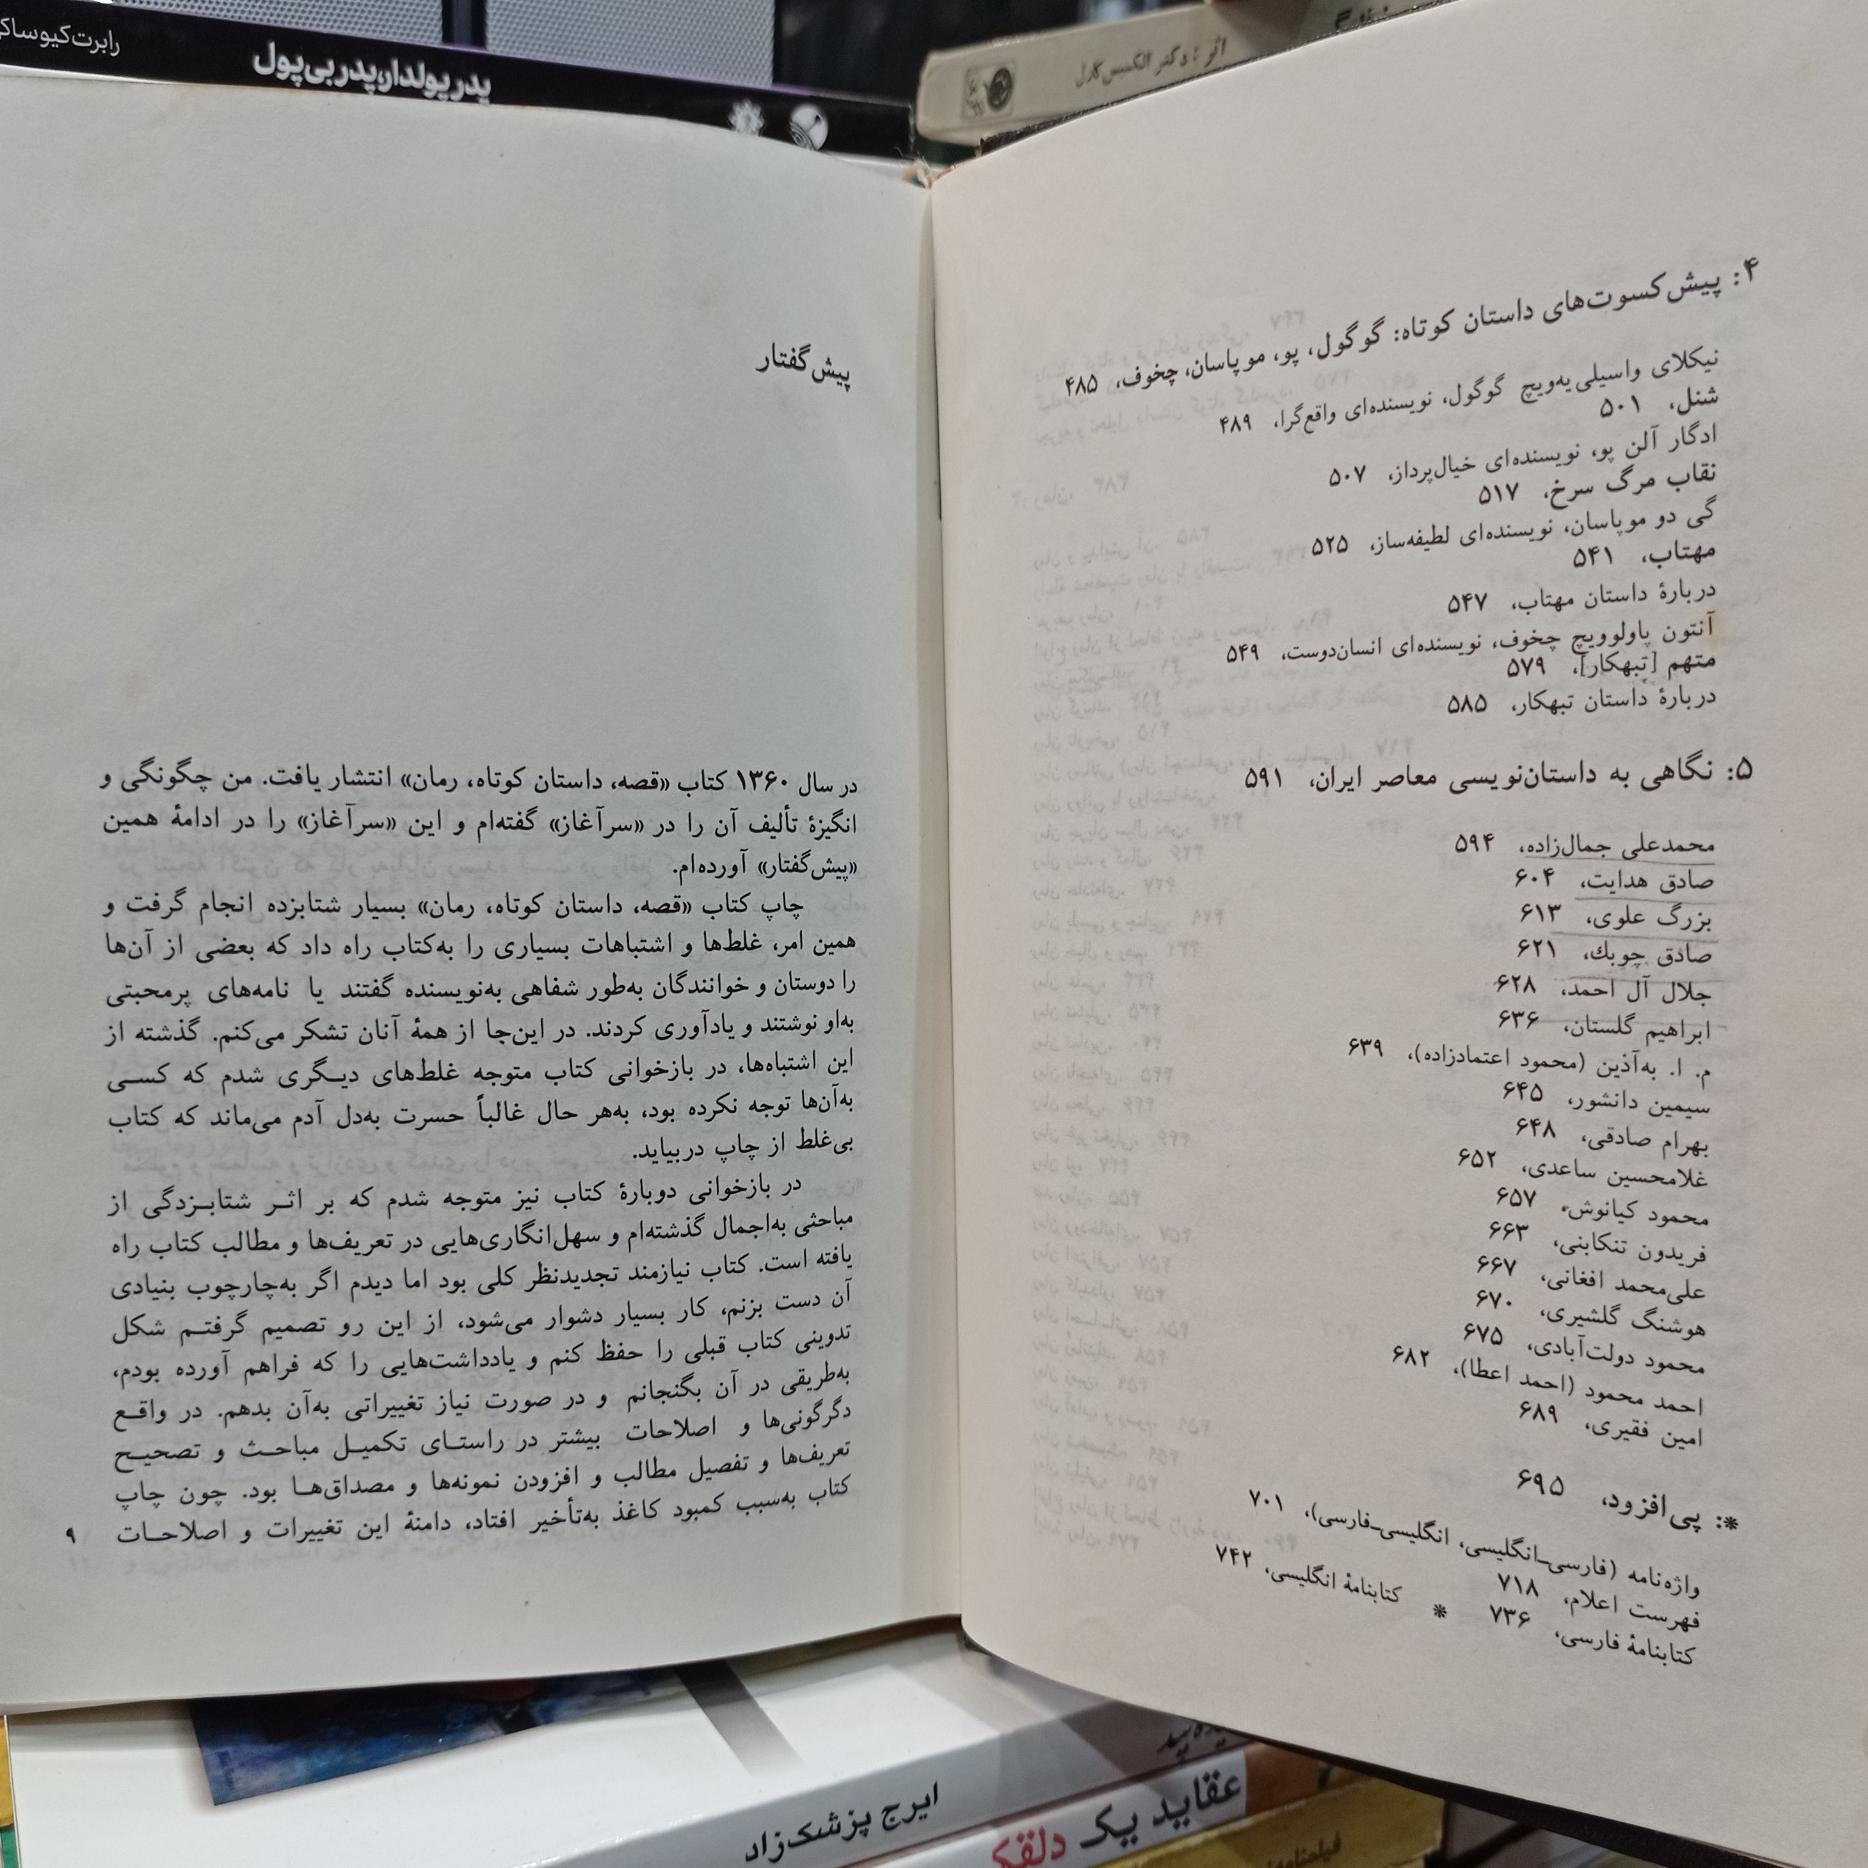 رابرت کیوساکی
پدر پولدار، پدر بی‌پول
اثر: دکتر الکسیس کارل
۴: پیش‌کسوت‌های داستان کوتاه: گوگول، پو، موپاسان، چخوف، ۴۸۵
نیکلای واسیلی‌یه‌ویچ گوگول، نویسنده‌ای واقع‌گرا، ۴۸۹
شنل، ۵۰۱
ادگار آلن پو، نویسنده‌ای خیال‌پرداز، ۵۰۷
نقاب مرگ سرخ، ۵۱۷
گی دو موپاسان، نویسنده‌ای لطیفه‌ساز، ۵۲۵
مهتاب، ۵۴۱
دربارهٔ داستان مهتاب، ۵۴۷
آنتون پاولوویچ چخوف، نویسنده‌ای انسان‌دوست، ۵۴۹
متهم [تبهکار]، ۵۷۹
دربارهٔ داستان تبهکار، ۵۸۵
۵: نگاهی به داستان‌نویسی معاصر ایران، ۵۹۱
محمدعلی جمال‌زاده، ۵۹۴
صادق هدایت، ۶۰۴
بزرگ علوی، ۶۱۳
صادق چوبك، ۶۲۱
جلال آل احمد، ۶۲۸
ابراهیم گلستان، ۶۳۶
م. ا. به‌آذین (محمود اعتمادزاده)، ۶۳۹
سیمین دانشور، ۶۴۵
بهرام صادقی، ۶۴۸
غلامحسین ساعدی، ۶۵۲
محمود کیانوش، ۶۵۷
فریدون تنکابنی، ۶۶۳
علی‌محمد افغانی، ۶۶۷
هوشنگ گلشیری، ۶۷۰
محمود دولت‌آبادی، ۶۷۵
احمد محمود (احمد اعطا)، ۶۸۲
امین فقیری، ۶۸۹
*: پی‌افزود، ۶۹۵
واژه‌نامه (فارسی‌ـانگلیسی، انگلیسی‌ـفارسی)، ۷۰۱
فهرست اعلام، ۷۱۸
کتابنامهٔ فارسی، ۷۳۶ * کتابنامهٔ انگلیسی، ۷۴۲
پیش‌گفتار
در سال ۱۳۶۰ کتاب «قصه، داستان کوتاه، رمان» انتشار یافت. من چگونگی و
انگیزهٔ تألیف آن را در «سرآغاز» گفته‌ام و این «سرآغاز» را در ادامهٔ همین
«پیش‌گفتار» آورده‌ام.
چاپ کتاب «قصه، داستان کوتاه، رمان» بسیار شتابزده انجام گرفت و
همین امر، غلط‌ها و اشتباهات بسیاری را به‌کتاب راه داد که بعضی از آن‌ها
را دوستان و خوانندگان به‌طور شفاهی به‌نویسنده گفتند یا نامه‌های پرمحبتی
به‌او نوشتند و یادآوری کردند. در این‌جا از همهٔ آنان تشکر می‌کنم. گذشته از
این اشتباه‌ها، در بازخوانی کتاب متوجه غلط‌های دیـگری شدم که کسـی
به‌آن‌ها توجه نکرده بود، به‌هر حال غالباً حسرت به‌دل آدم می‌ماند که کتاب
بی‌غلط از چاپ دربیاید.
در بازخوانی دوبارهٔ کتاب نیز متوجه شدم که بر اثـر شتابـزدگی از
مباحثی به‌اجمال گذشته‌ام و سهل‌انگاری‌هایی در تعریف‌ها و مطالب کتاب راه
یافته است. کتاب نیازمند تجدیدنظر کلی بود اما دیدم اگر به‌چارچوب بنیادی
آن دست بزنم، کار بسیار دشوار می‌شود، از این رو تصمیم گرفتـم شکل
تدوینی کتاب قبلی را حفظ کنم و یادداشت‌هایی را که فراهم آورده بودم،
به‌طریقی در آن بگنجانم و در صورت نیاز تغییراتی به‌آن بدهم. در واقـع
دگرگونی‌ها و اصلاحات بیشتر در راستـای تکمیـل مباحـث و تصحیـح
تعریف‌ها و تفصیل مطالب و افزودن نمونه‌ها و مصداق‌هـا بود. چون چاپ
کتاب به‌سبب کمبود کاغذ به‌تأخیر افتاد، دامنهٔ این تغییرات و اصلاحـات
۹
ایرج پزشک‌زاد
عقاید یک دلقک